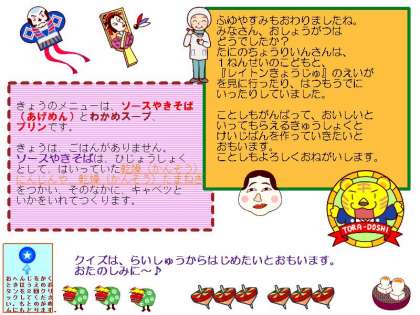 ふゆやすみもおわりましたね。
みなさん、おしょうがつは
どうでしたか？
たにのちょうりいんさんは、
１ねんせいのこどもと、
『レイトンきょうじゅ』のえいが
を見に行ったり、はつもうでに
いったりしていました。
ことしもがんばって、おいしいと
いってもらえるきゅうしょくと
けいじばんを作っていきたいと
おもいます。
ことしもよろしくおねがいします。
きょうのメニューは、ソースやきそば
（あげめん）とわかめスープ、
プリンです。
きょうは、ごはんがありません。
ソースやきそばは、ひじょうしょく
として、はいっていた乾燥（かんそう）
にんじんや、乾燥（かんそう）たまねぎ
をつかい、そのなかに、キャベツと
いかをいれてつくります。
TORA-DOSHI
クイズは、らいしゅうからはじめたいとおもいます。
おたのしみに～♪